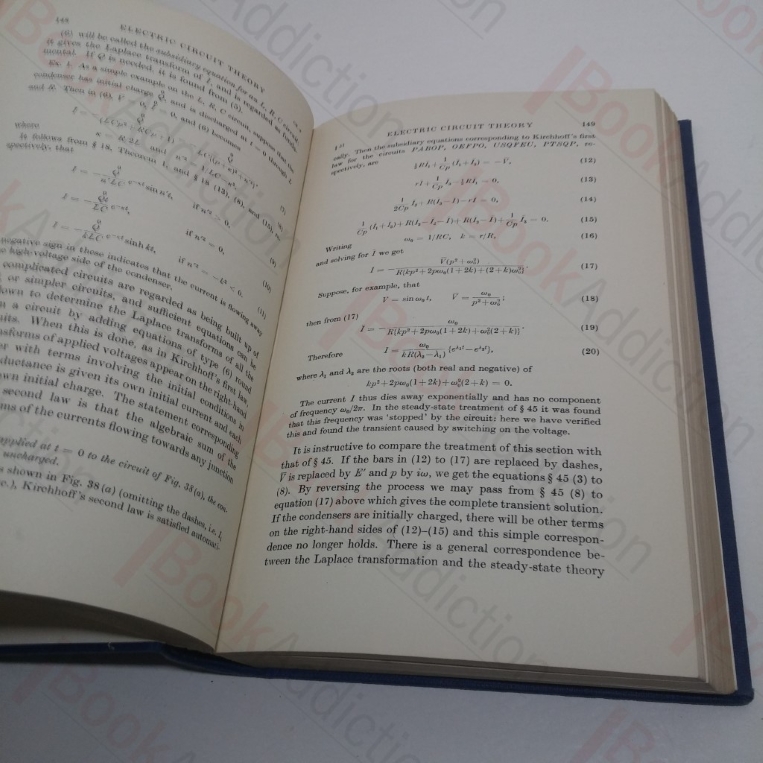 148 ELECTRIC CIRCUIT THEORY
(6) will be called the subsidiary equation for an L, R, C circuit.
it gives the Laplace transform of I, and is regarded as funda-
mental. If Q is needed, it is found from (5).
Ex. 1. As a simple example on the L, R, C circuit, suppose that the
condenser has initial charge Q, and is discharged at t = 0 through L
and R. Then in (6), V = 0, and (6) becomes
where
It follows from § 18, Theorem
spectively, that
if n² > 0,
if n² = 0,
if n² = −k² < 0.
negative sign in these indicates that the current is flowing away
high voltage side of the condenser.
complicated circuits are regarded as being built up of
or simpler circuits, and sufficient equations can be
down to determine the Laplace transforms of all the
n a circuit by adding equations of type (6) found
uits. When this is done, as in Kirchhoff's first law,
nsforms of applied voltages appear on the right-hand
er with terms involving the initial conditions in
ductance is given its own initial current and each
wn initial charge. The statement corresponding
second law is that the algebraic sum of the
ms of the currents flowing towards any junction
applied at t = 0 to the circuit of Fig. 38(a), the con-
uncharged.
s shown in Fig. 38(a) (omitting the dashes, i.e. I₁
c.), Kirchhoff's second law is satisfied automati-
ELECTRIC CIRCUIT THEORY 149
cally. Then the subsidiary equations corresponding to Kirchhoff's first
law for the circuits PAROP, OEFPO, USQFEU, PTSQP, re-
spectively, are
(12)
(13)
(14)
(15)
Writing ω₀ = 1/RC, k = r/R, (16)
and solving for I we get
I = − V̄(p²+ω₀²) / R{kp²+2pω₀(1+2k)+(2+k)ω₀²} (17)
Suppose, for example, that
V = sin ω₀t, V̄ = ω₀/(p²+ω₀²); (18)
then from (17)
Ī = − ω₀ / R{kp²+2pω₀(1+2k)+ω₀²(2+k)}. (19)
Therefore (20)
where λ₁ and λ₂ are the roots (both real and negative) of
kp²+2pω₀(1+2k)+ω₀²(2+k) = 0.
The current I thus dies away exponentially and has no component
of frequency ω₀/2π. In the steady-state treatment of § 45 it was found
that this frequency was 'stopped' by the circuit: here we have verified
this and found the transient caused by switching on the voltage.
It is instructive to compare the treatment of this section with
that of § 45. If the bars in (12) to (17) are replaced by dashes,
V̄ is replaced by E″ and p by iω, we get the equations § 45 (3) to
(8). By reversing the process we may pass from § 45 (8) to
equation (17) above which gives the complete transient solution.
If the condensers are initially charged, there will be other terms
on the right-hand sides of (12)–(15) and this simple correspon-
dence no longer holds. There is a general correspondence be-
tween the Laplace transformation and the steady-state theory